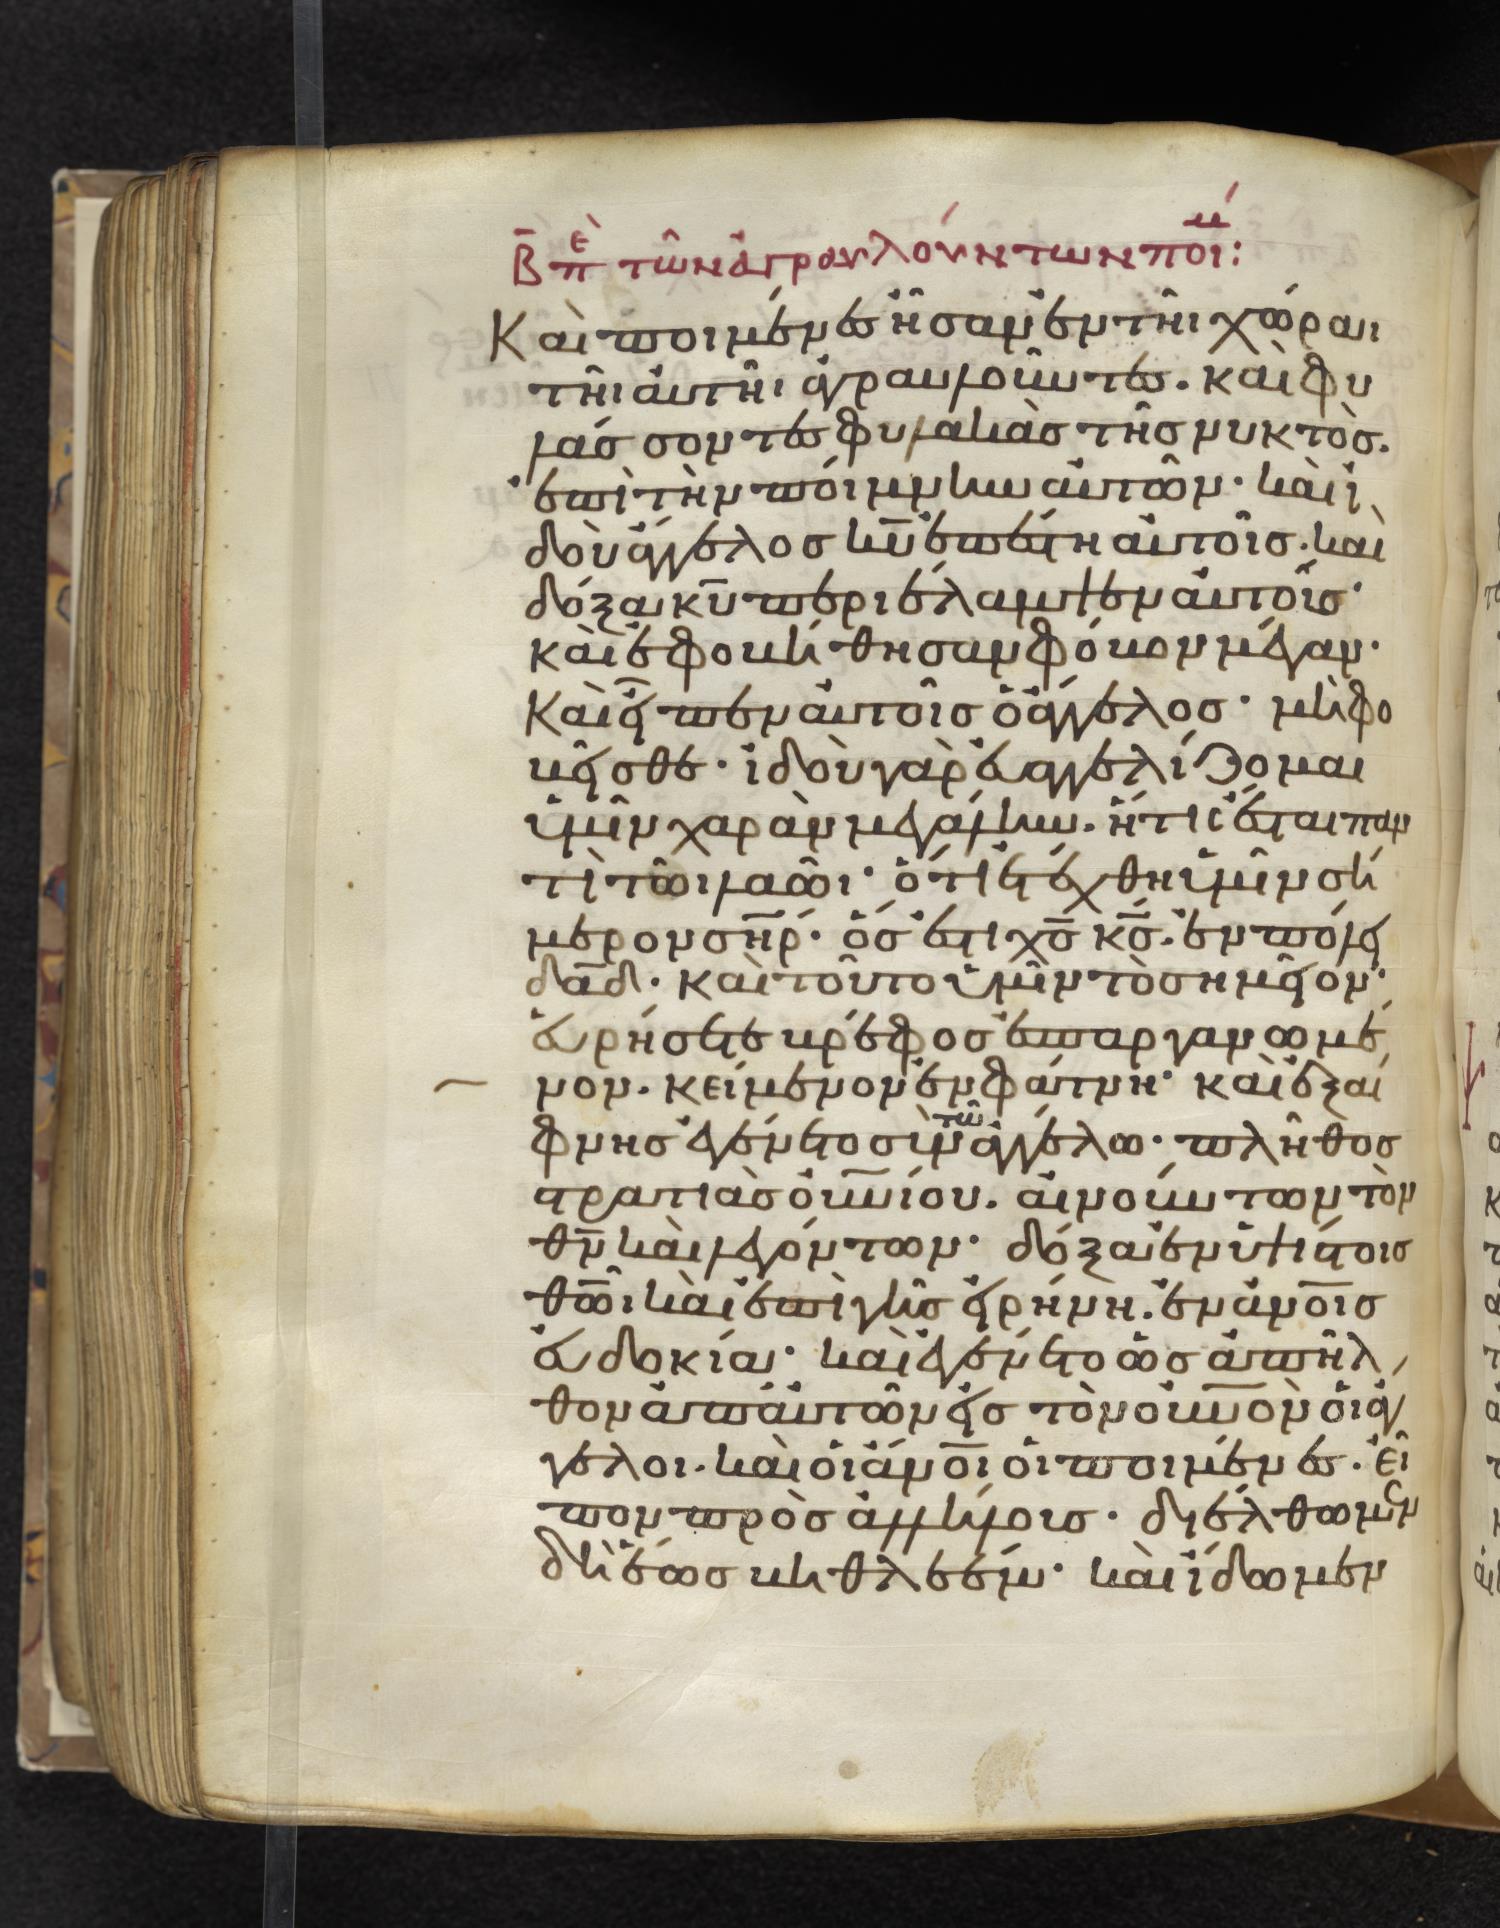 Β̄ πὲ τῶν ἀγραυλούντων ποιμ́:
Καὶ ποιμένες ἦσαν ἐν τῆι χώραι
τῆι ἀυτῆι ἀγραυλοῦντες. καὶ φυ
λάσσοντες φυλακὰσ τῆσ νυκτὸσ.
ἐπὶ τὴν ποίμνην ἀυτῶν· καὶ ἰ
δοὺ ἄγγελοσ κῡ ἐπέστη ἀυτοῖσ. καὶ
δόξα κῡ περιέλαμψεν ἀυτοῖσ·
καὶ ἐφοβήθησαν φόβον μέγαν·
Καὶ εἶπεν ἀυτοῖσ ὁ ἄγγελοσ· μὴ φο
βεῖσθε· ἰδοὺ γὰρ ἐυαγγελίζομαι
ὑμῖν χαρὰν μεγάλην. ἥτις ἔσται παν
τὶ τῶι λαῶι· ὅτι ἐτέχθη ὑμῖν σή
μερον σ̄η̄ρ́. ὅσ ἐστι χ̄σ̄ κ̄σ̄. ἐν πόλει
δᾱδ. καὶ τοῦτο ὑμῖν τὸ σημεῖον·
ἑυρήσετε βρέφοσ ἐσπαργανωμέ
νον. κείμενον ἐν φάτνη· καὶ ἐξαί
φνησ ἐγένετο σὺν τῶ ἀγγέλω· πλῆθοσ
στρατιὰσ ὀυνίου. αἰνούντων τὸν
θ̄ν̄ καὶ λεγόντων· δόξα ἐν ὑψίστοισ
θ̄ῶ̄ι καὶ ἐπὶ γῆσ εἰρήνη. ἐν ἀνοῖσ
ἐυδοκία· καὶ ἐγένετο ὡσ ἀπῆλ
θον ἀπ ἀυτῶν εἰσ τὸν ὀυνὸν ὁι ἄγ
γελοι. καὶ ὁι ἄνοι ὁι ποιμένες. εἶ
πον πρὸσ ἀλλήλοισ· διέλθωμεν
δὴ ἕωσ βηθλεέμ· καὶ ἴδωμεν